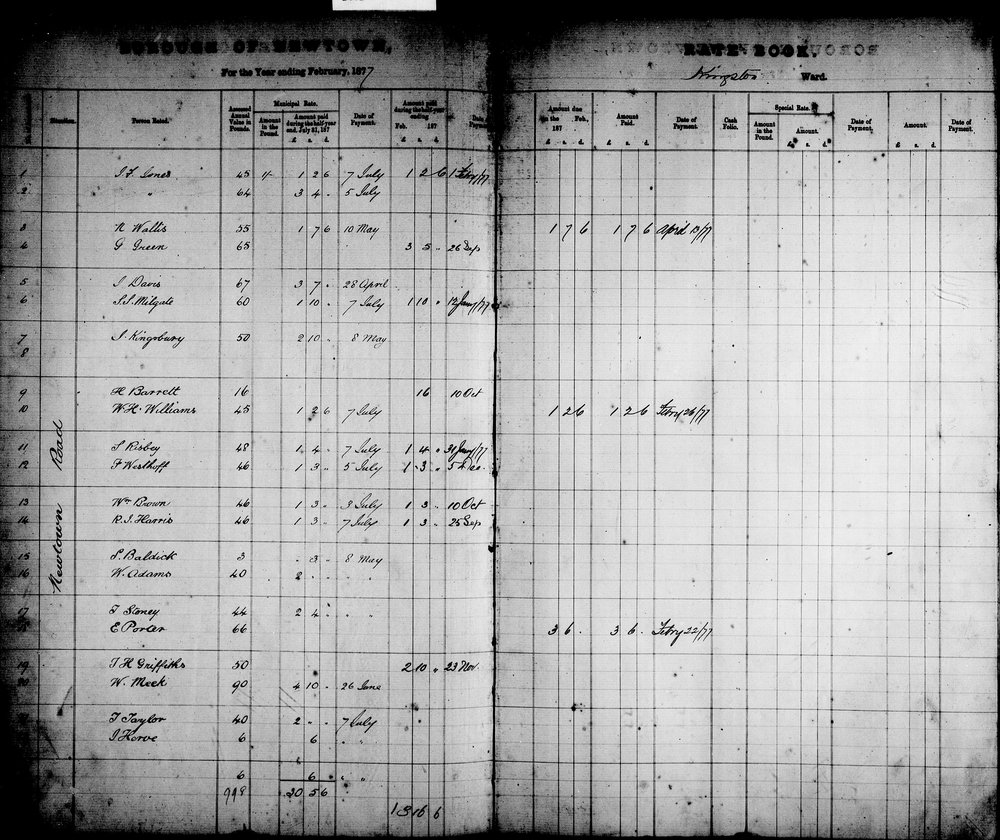 BOROUGH OF NEWTOWN,
For the Year ending February, 1877
RATE BOOK.
Kingston Ward.
Situation. Person Rated. Assessed Annual Value in Pounds. Municipal Rate. Amount in the Pound. Amount paid during the half-year end. July 31, 187 £ s. d. Date of Payment. Amount paid during the half-year ending Feb. 187 £ s. d. Date Payment Amount due on the Feb., 187 £ s. d. Amount Paid. £ s. d. Date of Payment. Cash Folio. Special Rate. Amount in the Pound. Amount. £ s. d. Date of Payment. Amount. £ s. d. Date of Payment.
Newtown Road
1 J. F. Jones 45 1/- 1 2 6 7 July 1 2 6 1 Febry/77
2 " 64 3 4 - 5 July
3 N Wallis 55 1 7 6 10 May 1 7 6 1 7 6 April 13/77
4 G Green 65 3 5 - 26 Sep
5 J Davis 67 3 7 - 28 April
6 S.S. Milgate 60 1 10 - 7 July 1 10 " 12 Jany/77
7 J. Kingsbury 50 2 10 - 8 May
8
9 H Barrett 16 16 10 Oct
10 W. H. Williams 45 1 2 6 7 July 1 2 6 1 2 6 Febry 26/77
11 S Risbey 48 1 4 - 7 July 1 4 " 31 Jany/77
12 F Westhoff 46 1 3 - 5 July 1 3 " 5 Dec.
13 Wm Brown 46 1 3 - 3 July 1 3 - 10 Oct
14 R. J. Harris 46 1 3 - 7 July 1 3 - 25 Sep
15 S. Baldick 3 - 3 - 8 May
16 W. Adams 40 2 - - " "
17 T Stoney 44 2 4 - " "
18 E Porter 66 3 6 - 3 6 - Febry 22/77
19 T H Griffiths 50 2 10 " 23 Nov
20 W. Meek 90 4 10 - 26 June
21 T Taylor 40 2 " " 7 July
J Horve 6 6 " "
6 6 " "
998 20 5 6
13 16 6